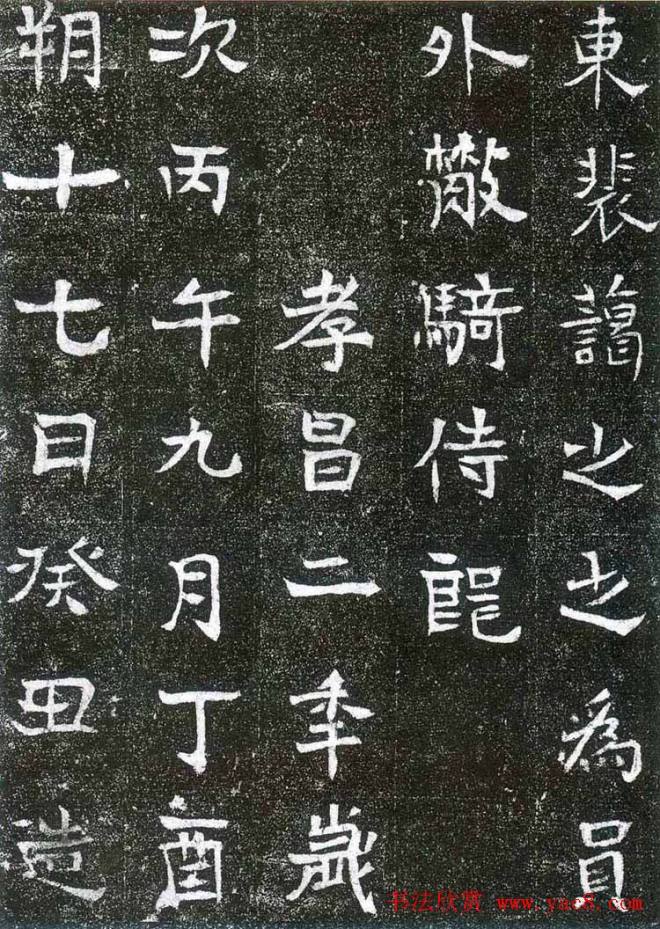 東裴藹之之為員
外散騎侍郎
孝昌二年歲
次丙午九月丁酉
朔十七日癸丑造
书法欣赏 www.yac8.com